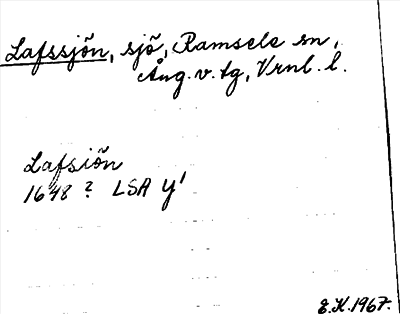 Lafssjön, sjö, Ramsele sn,
Ång.v.tg, Vrnl. l.
Lafsiön
1648 ? LSA Y'
E.K.1967.